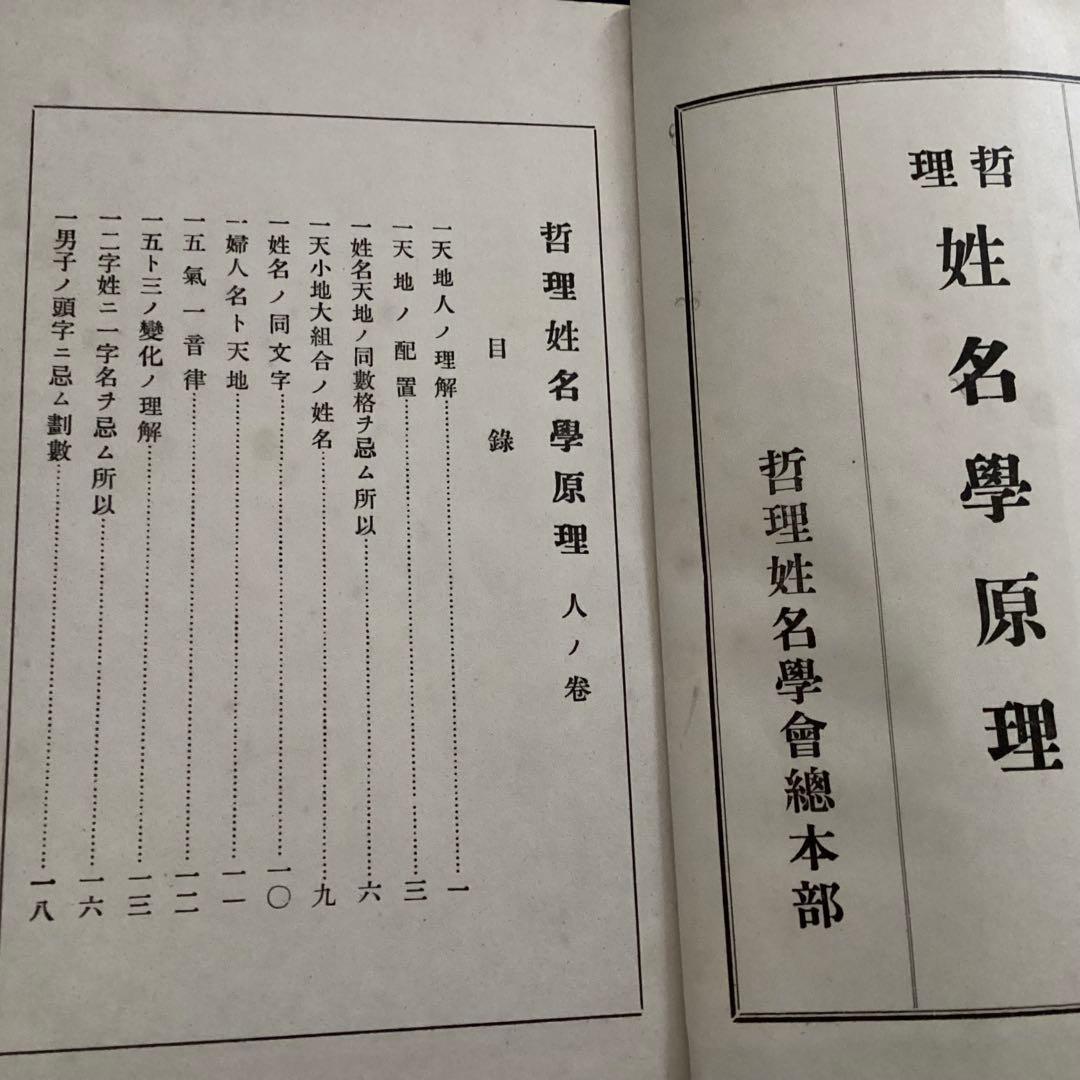 哲理
姓名學原理
哲理姓名學會總本部
哲理姓名學原理 人ノ卷
目錄
一天地人ノ理解………一
一天地ノ配置………三
一姓名天地ノ同數格ヲ忌ム所以………六
一天小地大組合ノ姓名………九
一姓名ノ同文字………一〇
一婦人名ト天地………一一
一五氣一音律………一二
一五ト三ノ變化ノ理解………一三
一二字姓ニ一字名ヲ忌ム所以………一六
一男子ノ頭字ニ忌ム劃數………一八